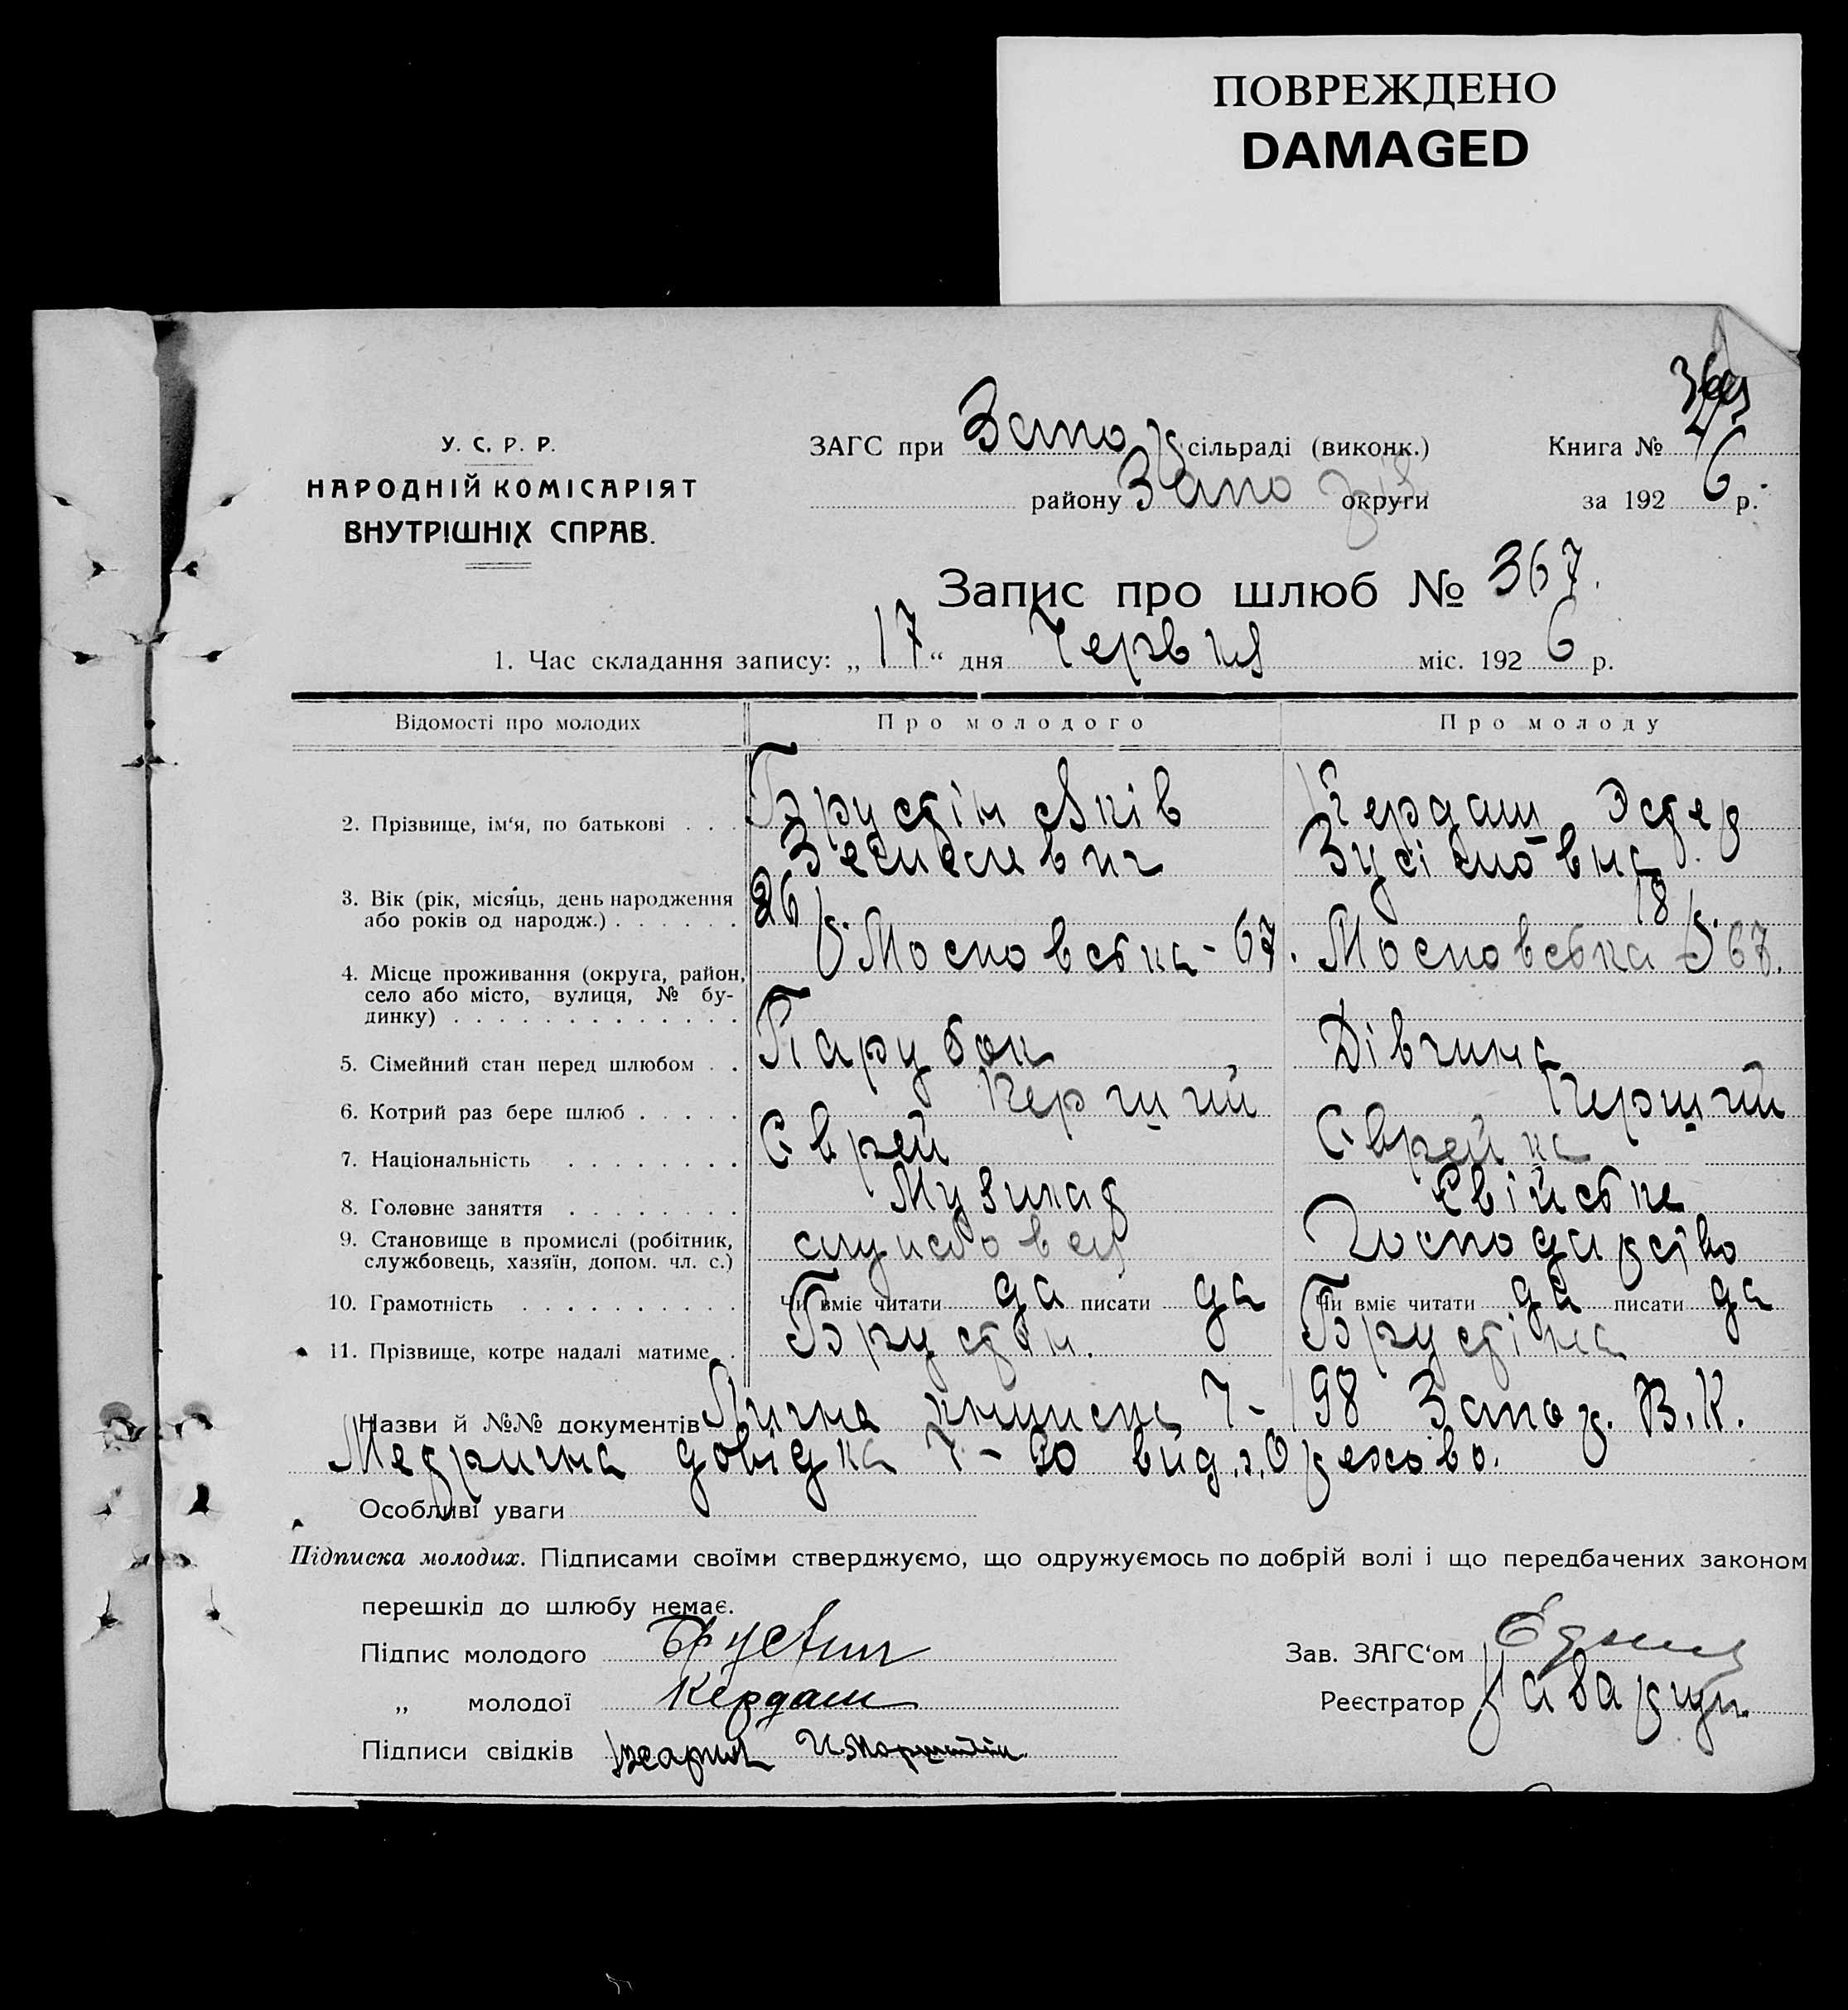 ПОВРЕЖДЕНО
DAMAGED
У. С. Р. Р.
НАРОДНІЙ КОМІСАРІЯТ
ВНУТРІШНІХ СПРАВ.
ЗАГС при Запор сільраді (виконк.) Книга №
району Запоріз округи за 1926 р.
Запис про шлюб № 367.
1. Час складання запису: „17“ дня Червня міс. 1926 р.
Відомості про молодих Про молодого Про молоду
2. Прізвище, ім‘я, по батькові . . . Брустін Яків Кердаш Эстер
Зусімовна
3. Вік (рік, місяць, день народження
або років од народж.) . . . . . . 26 р. 18 р.
4. Місце проживання (округа, район, Московська - 67. Московська 67.
село або місто, вулиця, № бу-
динку) . . . . . . . . . . . . .
5. Сімейний стан перед шлюбом . . Парубок Дівчина
6. Котрий раз бере шлюб . . . . . Перший Перший
7. Національність . . . . . . . . Єврей Єврейка
8. Головне заняття . . . . . . . . Музикат Свійське
9. Становище в промислі (робітник,
службовець, хазяїн, допом. чл. с.) службовец Господарство
10. Грамотність . . . . . . . . . . Чи вміє читати да писати да Чи вміє читати да писати да
11. Прізвище, котре надалі матиме . . Брустін. Брустіна
Назви й №№ документів Лична книжка 7-198 Запор. В.К.
Метрична довідка 7-20 вид. г. Орехово.
Особливі уваги
Підписка молодих. Підписами своїми стверджуємо, що одружуємось по добрій волі і що передбачених законом
перешкід до шлюбу немає.
Підпис молодого Брустин Зав. ЗАГС‘ом
„ молодої Кердаш Реєстратор
Підписи свідків